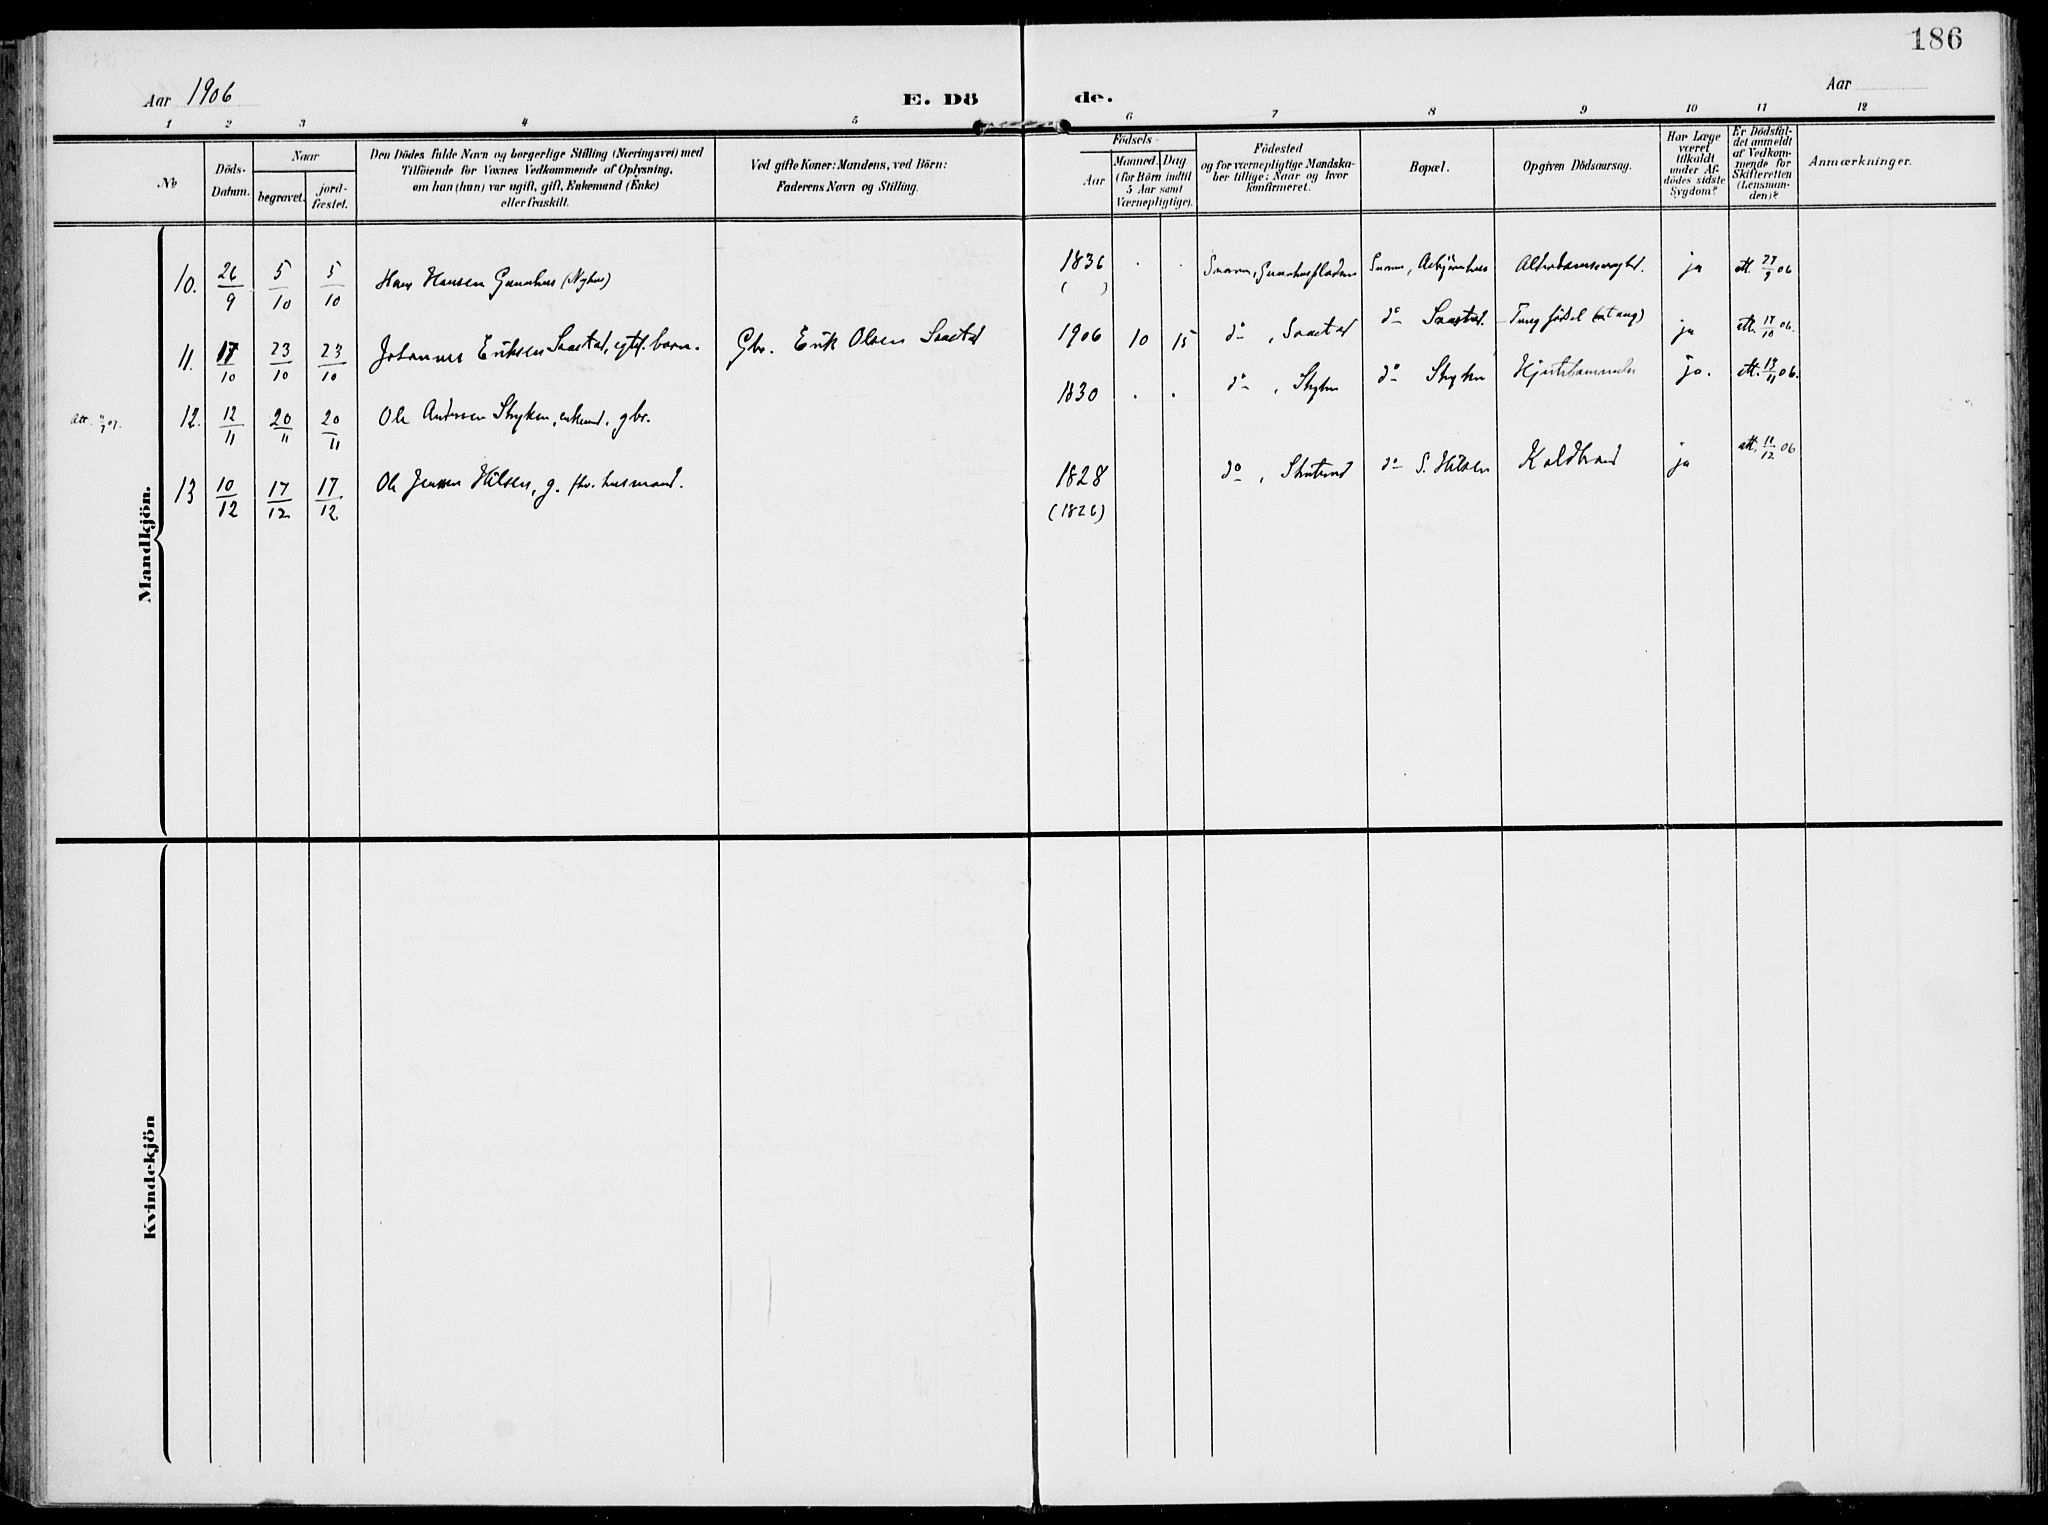 186
Aar 1906
E. Dö de.
Aar
1 2 3 4 5 6 7 8 9 10 11 12
No
Döds-
Datum.
Naar
begravet.
jord-
fæstet.
Den Dödes fulde Navn og borgerlige Stilling (Næringsvei) med
Tilföiende for Voxnes Vedkommende af Oplysning,
om han (hun) var ugift, gift, Enkemand (Enke)
eller fraskilt.
Ved gifte Koner: Mandens, ved Börn:
Faderens Navn og Stilling.
Födsels-
Aar
Maaned. Dag
(for Börn indtil
5 Aar samt
Værnepligtige).
Födested
og for værnepligtige Mandska-
ber tillige: Naar og hvor
konfirmeret.
Bopæl.
Opgiven Dödsaarsag.
Har Læge
været
tilkaldt
under Af-
dödes sidste
Sygdom?
Er Dödsfal-
det anmeldt
af Vedkom-
mende for
Skifteretten
(Lensman-
den)?
Anmærkninger.
Mandkjön.
10. 26/9 5/10 5/10 Hans Hansen (Nyhus) 1836 . . ja att. 27/9 06
( )
11. 17/10 23/10 23/10 Johannes Eriksen Saastad, egtef. barn. Gbr. Erik Olsen Saastad 1906 10 15 do, Saastad do Saastad. Tung födsel (tang) ja att. 17/10 06.
12. 12/11 20/11 20/11 Ole Andersen Stryken, enkemd. gbr. 1830 . . do, Stryken do Stryken ja. att. 06.
13 10/12 17/12 17/12 Ole Jensen Hilsen, g. fhv. husmand. 1828 do, do S. Hilsen Koldbrand ja att. 11/12 06
(1826)
Kvindekjön